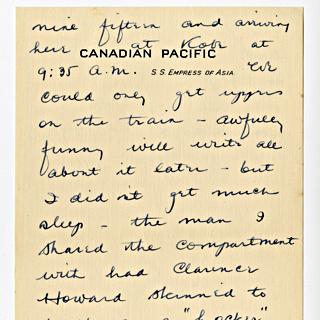 nine fifteen and arriving
CANADIAN PACIFIC
here at Kobe at
S.S. EMPRESS OF ASIA
9:35 A.M. We
could only get uppers
on the train – awfully
funny will write all
about it later – but
I did n't get much
sleep – the man I
shared the compartment
with had Clarence
Howard skinned to
"hacker"